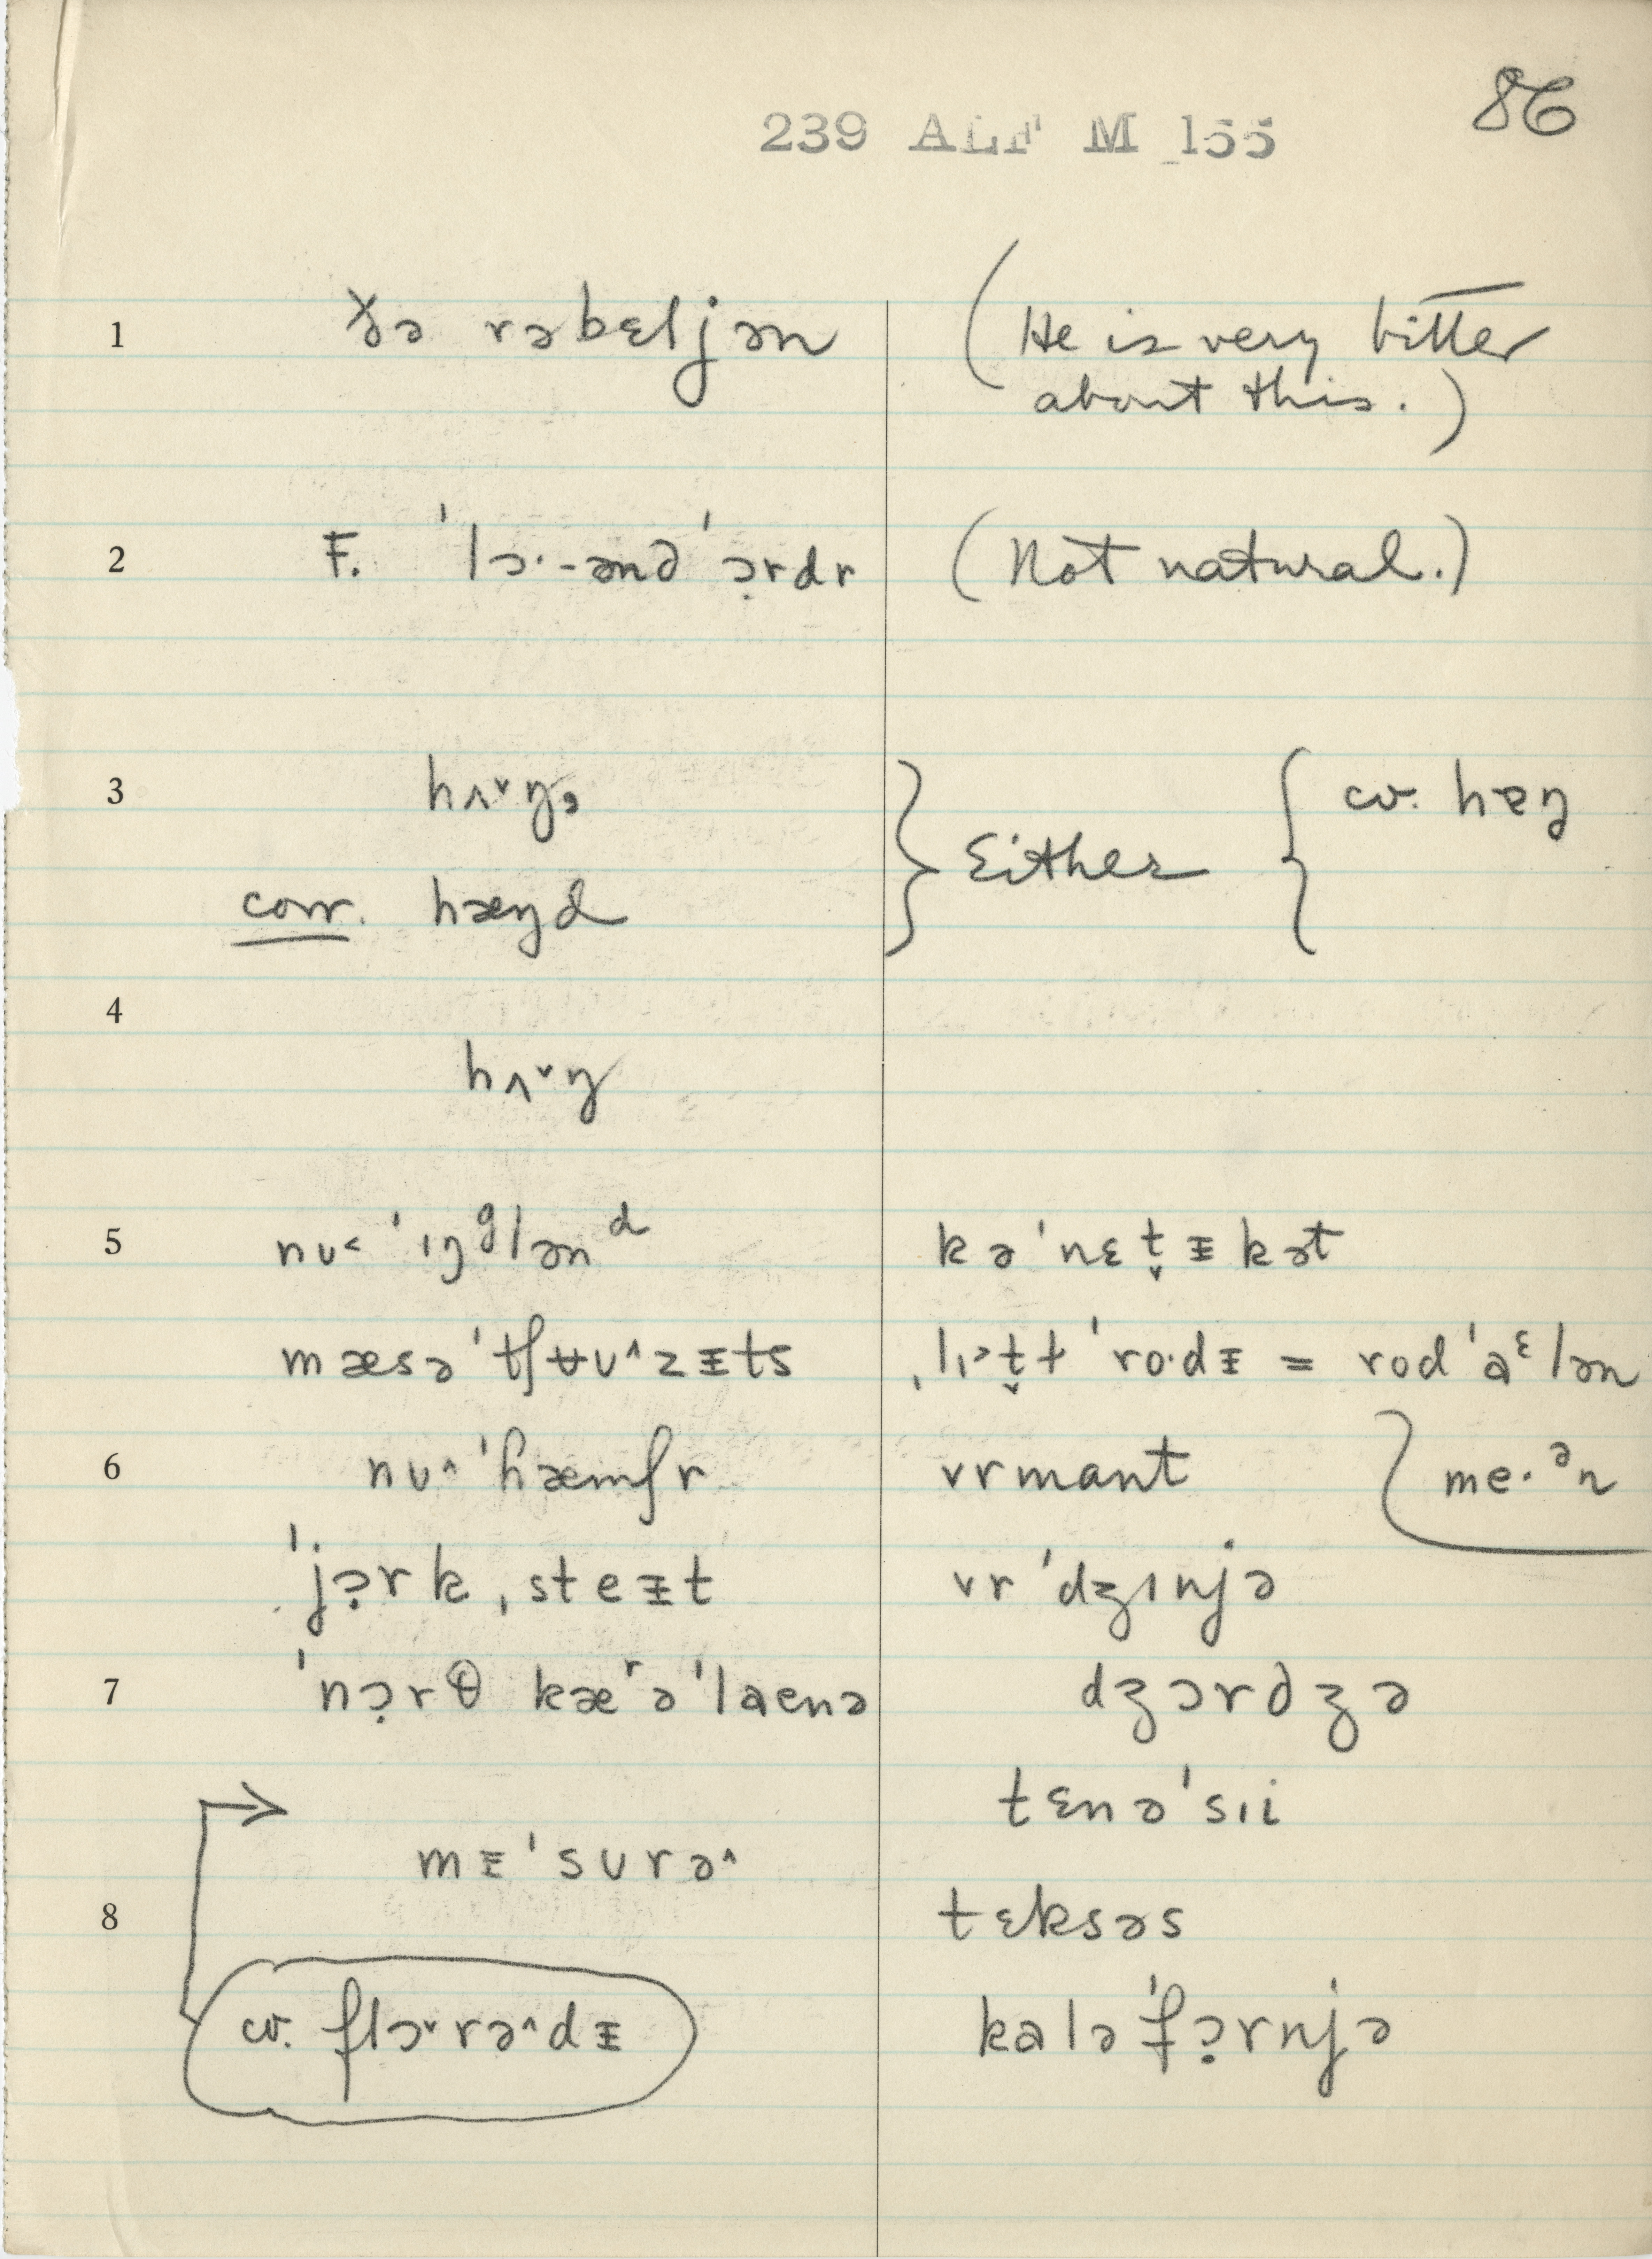 86
239 ALF M 155
1 ðə rəbɛljən (He is very bitter
about this.)
2 F. ˈlɔ·-ənd ˈɔ̣rdr (Not natural.)
3 hʌ˅ŋ, } Either { cv. hɐŋ
corr. hæŋd
4
hʌ˅ŋ
5 nʊ˂ ˈɪŋᵍlənᵈ kəˈnɛt̬ᵻkət
mæsəˈtʃʉʊ˄zᵻts ˌlɪ˃t̬ɫ ˈro·dᵻ = rodˈaᵋlən
6 nʊ˄ ˈhæmʃr vrmant me·ᵊn
ˈjɔ̣rkˌsteᵻt vrˈdʒɪnjə
7 ˈnɔ̣rθ kæʳəˈlaenə dʒɔrdʒə
tɛnəˈsɪi
mᵻˈsʊrə˄
8 tɛksəs
cv. flɔ˅rə˄dᵻ kaləˈfɔ̣rnjə